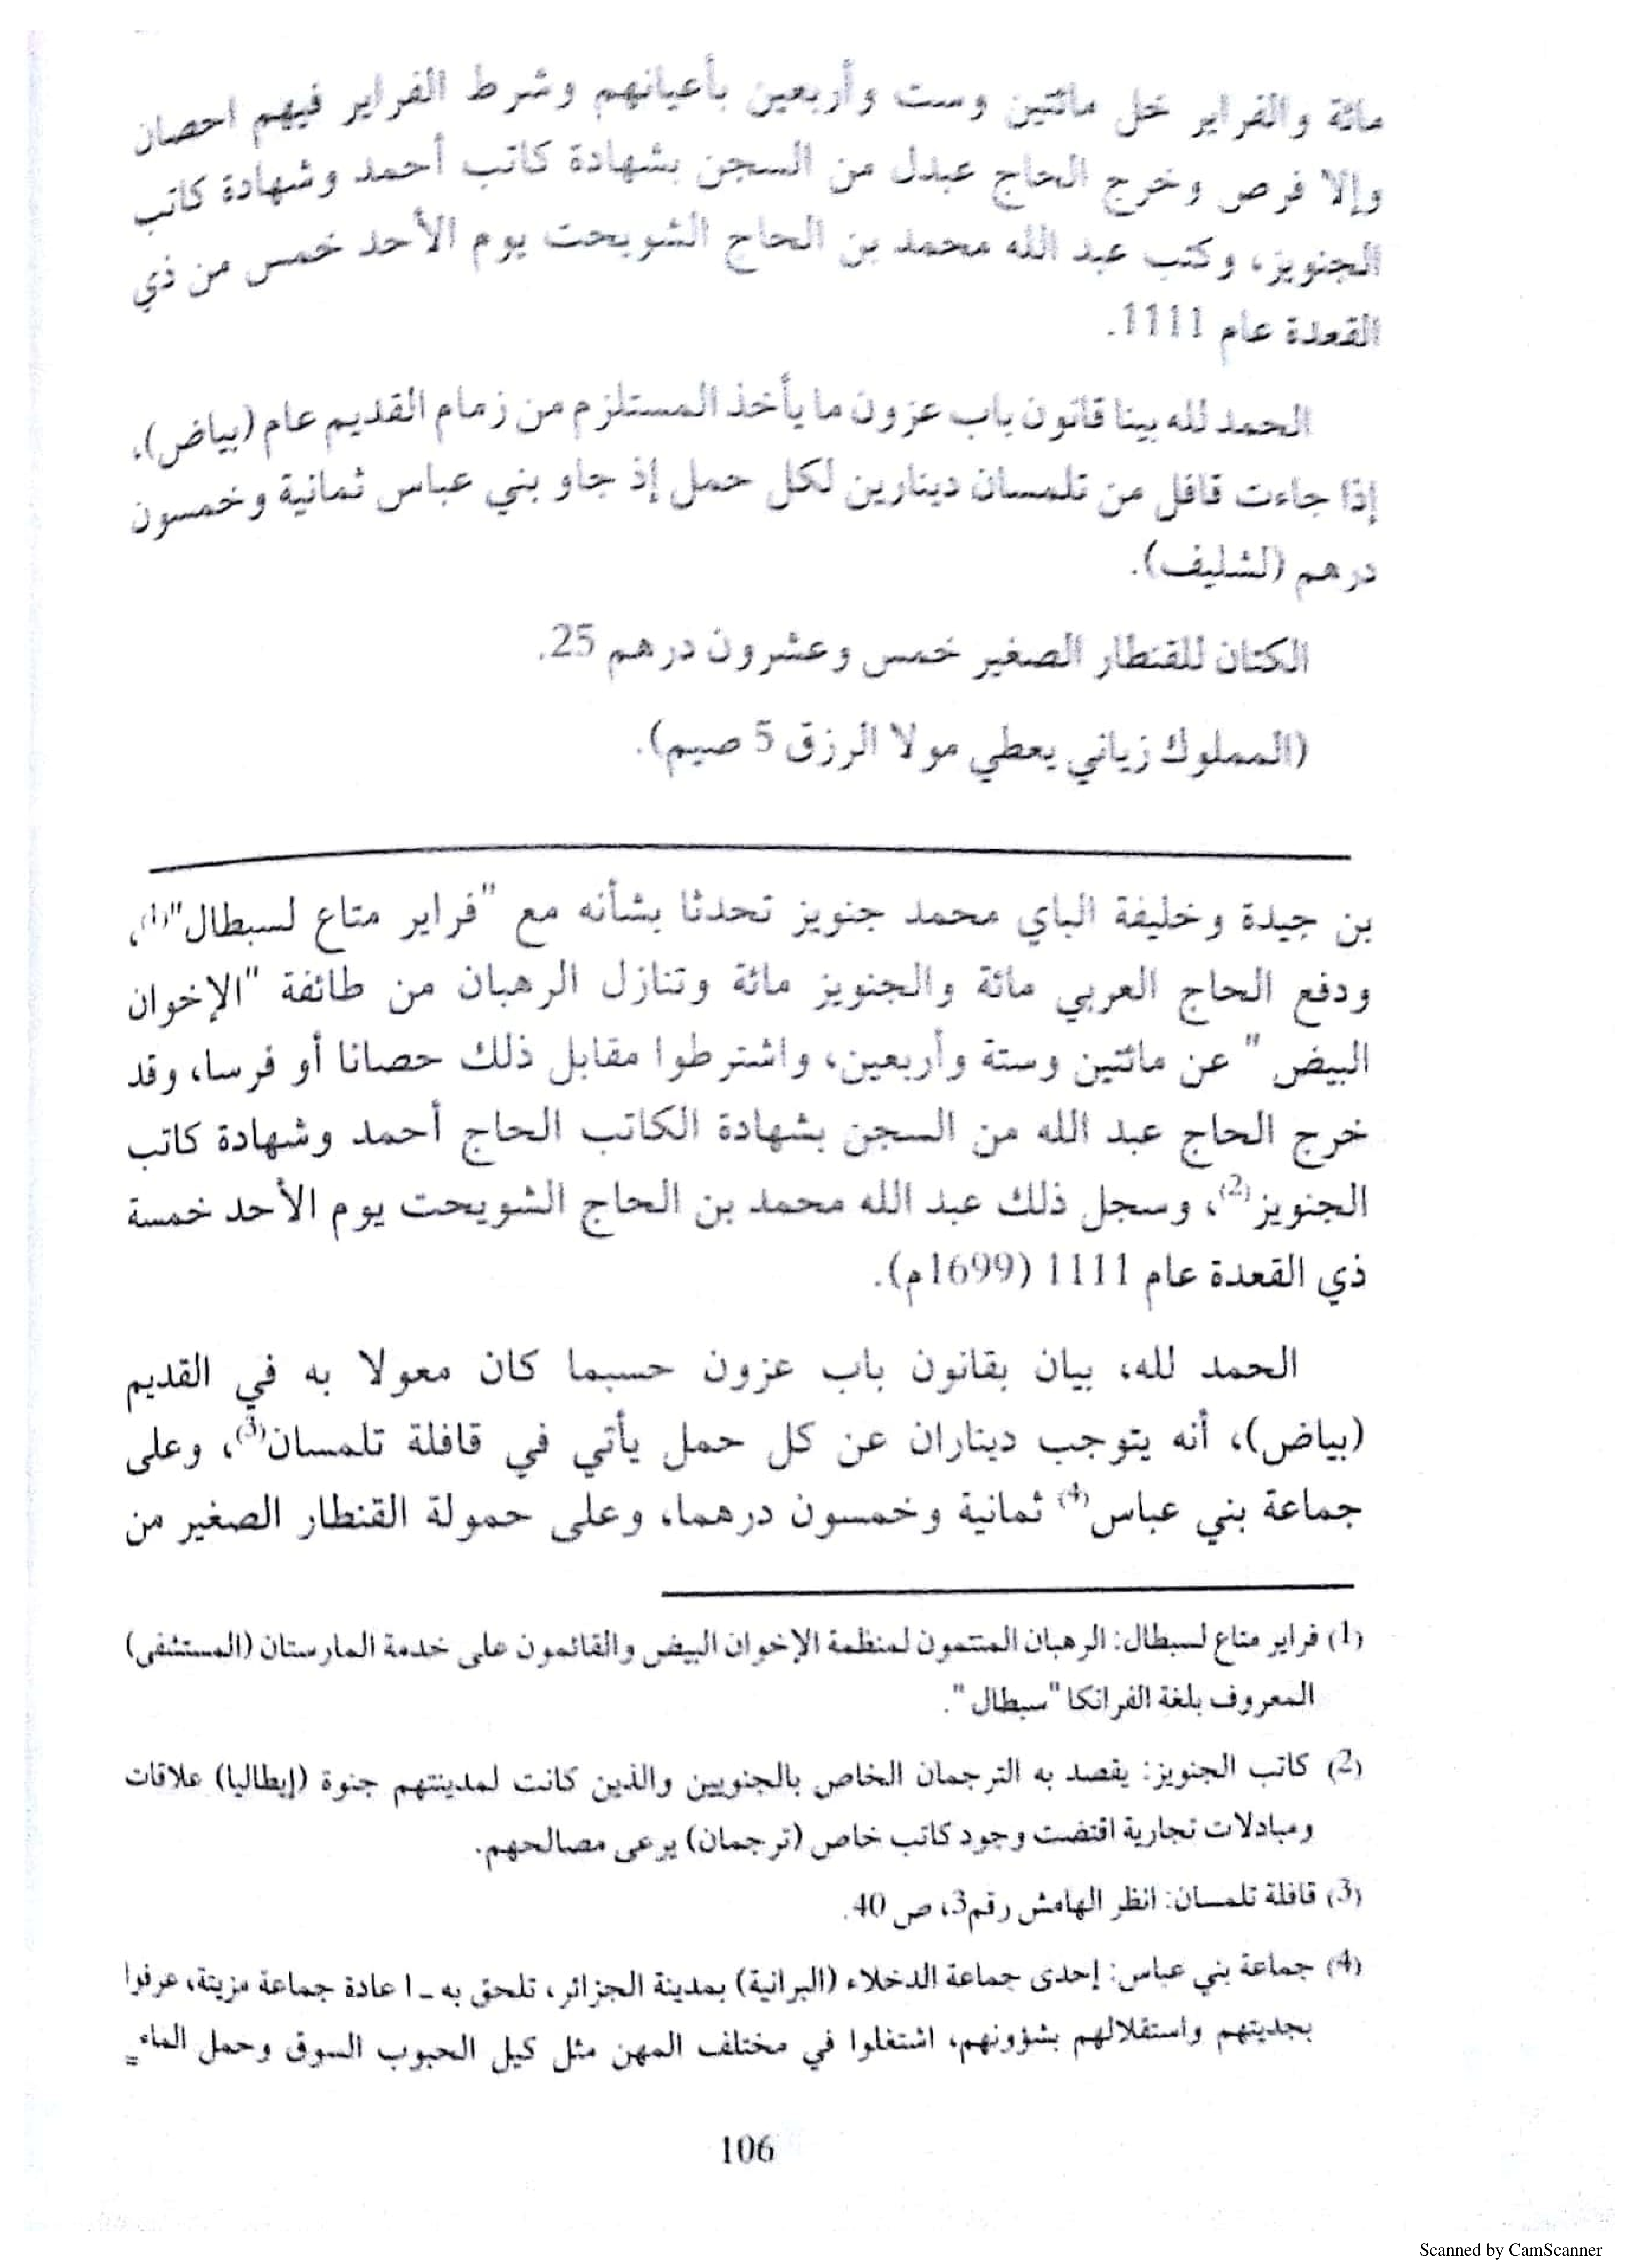 مائة والفراير خل مائتين وست وأربعين بأعيانهم وشرط الفراير فيهم احصان
وإلا فرص وخرج الحاج عبدل من السجن بشهادة كاتب أحمد وشهادة كاتب
الجنويز، وكتب عبد الله محمد بن الحاج الشويحت يوم الأحد خمس من ذي
القعدة عام 1111.
الحمد لله بينا قانون باب عزون ما يأخذ المستلزم من زمام القديم عام (بياض)،
إذا جاءت قافل من تلمسان دينارين لكل حمل إذ جاو بني عباس ثمانية وخمسون
درهم (لشليف).
الكتان للقنطار الصغير خمس وعشرون درهم 25.
(المملوك زياني يعطي مولا الرزق 5 صيم).
بن جيدة وخليفة الباي محمد جنويز تحدثا بشأنه مع "فراير متاع لسبطال"(1)،
ودفع الحاج العربي مائة والجنويز مائة وتنازل الرهبان من طائفة "الإخوان
البيض" عن مائتين وستة وأربعين، واشترطوا مقابل ذلك حصانا أو فرسا، وقد
خرج الحاج عبد الله من السجن بشهادة الكاتب الحاج أحمد وشهادة كاتب
الجنويز(2)، وسجل ذلك عبد الله محمد بن الحاج الشويحت يوم الأحد خمسة
ذي القعدة عام 1111 (1699م).
الحمد لله، بيان بقانون باب عزون حسبما كان معولا به في القديم
(بياض)، أنه يتوجب ديناران عن كل حمل يأتي في قافلة تلمسان(3)، وعلى
جماعة بني عباس(4) ثمانية وخمسون درهما، وعلى حمولة القنطار الصغير من
(1) فراير متاع لسبطال: الرهبان المنتمون لمنظمة الإخوان البيض والقائمون على خدمة المارستان (المستشفى)
المعروف بلغة الفرانكا "سبطال".
(2) كاتب الجنويز: يقصد به الترجمان الخاص بالجنويين والذين كانت لمدينتهم جنوة (إيطاليا) علاقات
ومبادلات تجارية اقتضت وجود كاتب خاص (ترجمان) يرعى مصالحهم.
(3) قافلة تلمسان: انظر الهامش رقم3، ص 40.
(4) جماعة بني عباس: إحدى جماعة الدخلاء (البرانية) بمدينة الجزائر، تلحق به ـ ا عادة جماعة مزيتة، عرفوا
بجديتهم واستقلالهم بشؤونهم، اشتغلوا في مختلف المهن مثل كيل الحبوب السوق وحمل الماء =
106
Scanned by CamScanner